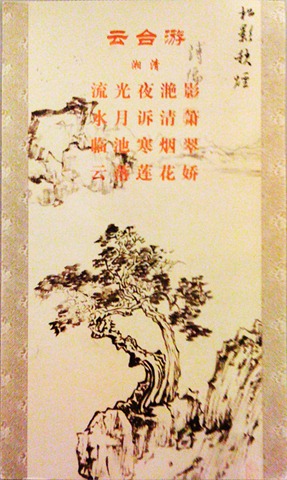 松影秋煙
云合游
湘清
流光夜滟影
水月诉清萧
临池寒烟翠
云落莲花娇